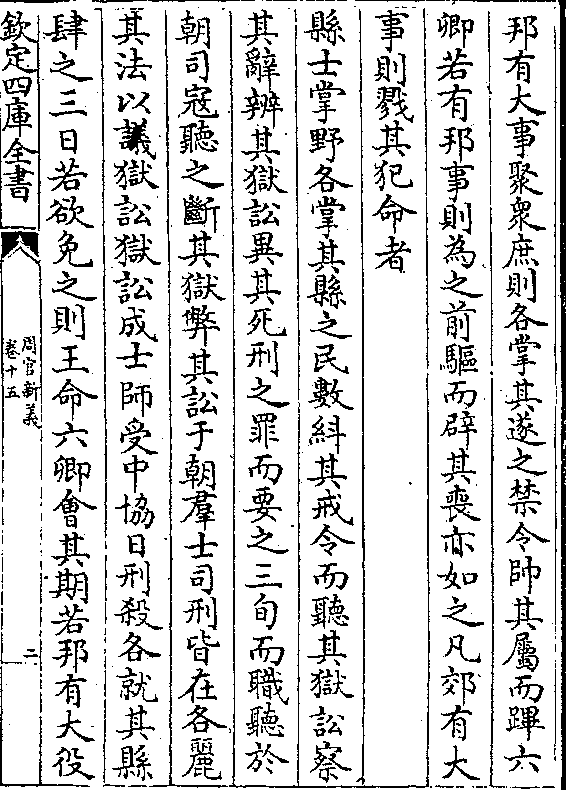 邦有大事聚衆庶則各掌其遂之禁令帥其屬而蹕六
卿若有邦事則為之前驅而辟其喪亦如之凡郊有大
事則戮其犯命者
縣士掌野各掌其縣之民數糾其戒令而聽其獄訟察
其辭辨其獄訟異其死刑之罪而要之三旬而職聽於
朝司寇聽之斷其獄弊其訟于朝羣士司刑皆在各麗
其法以議獄訟獄訟成士師受中協日刑殺各就其縣
肆之三日若欲免之則王命六卿會其期若邦有大役
欽定四庫全書
周官新義
卷十五
二